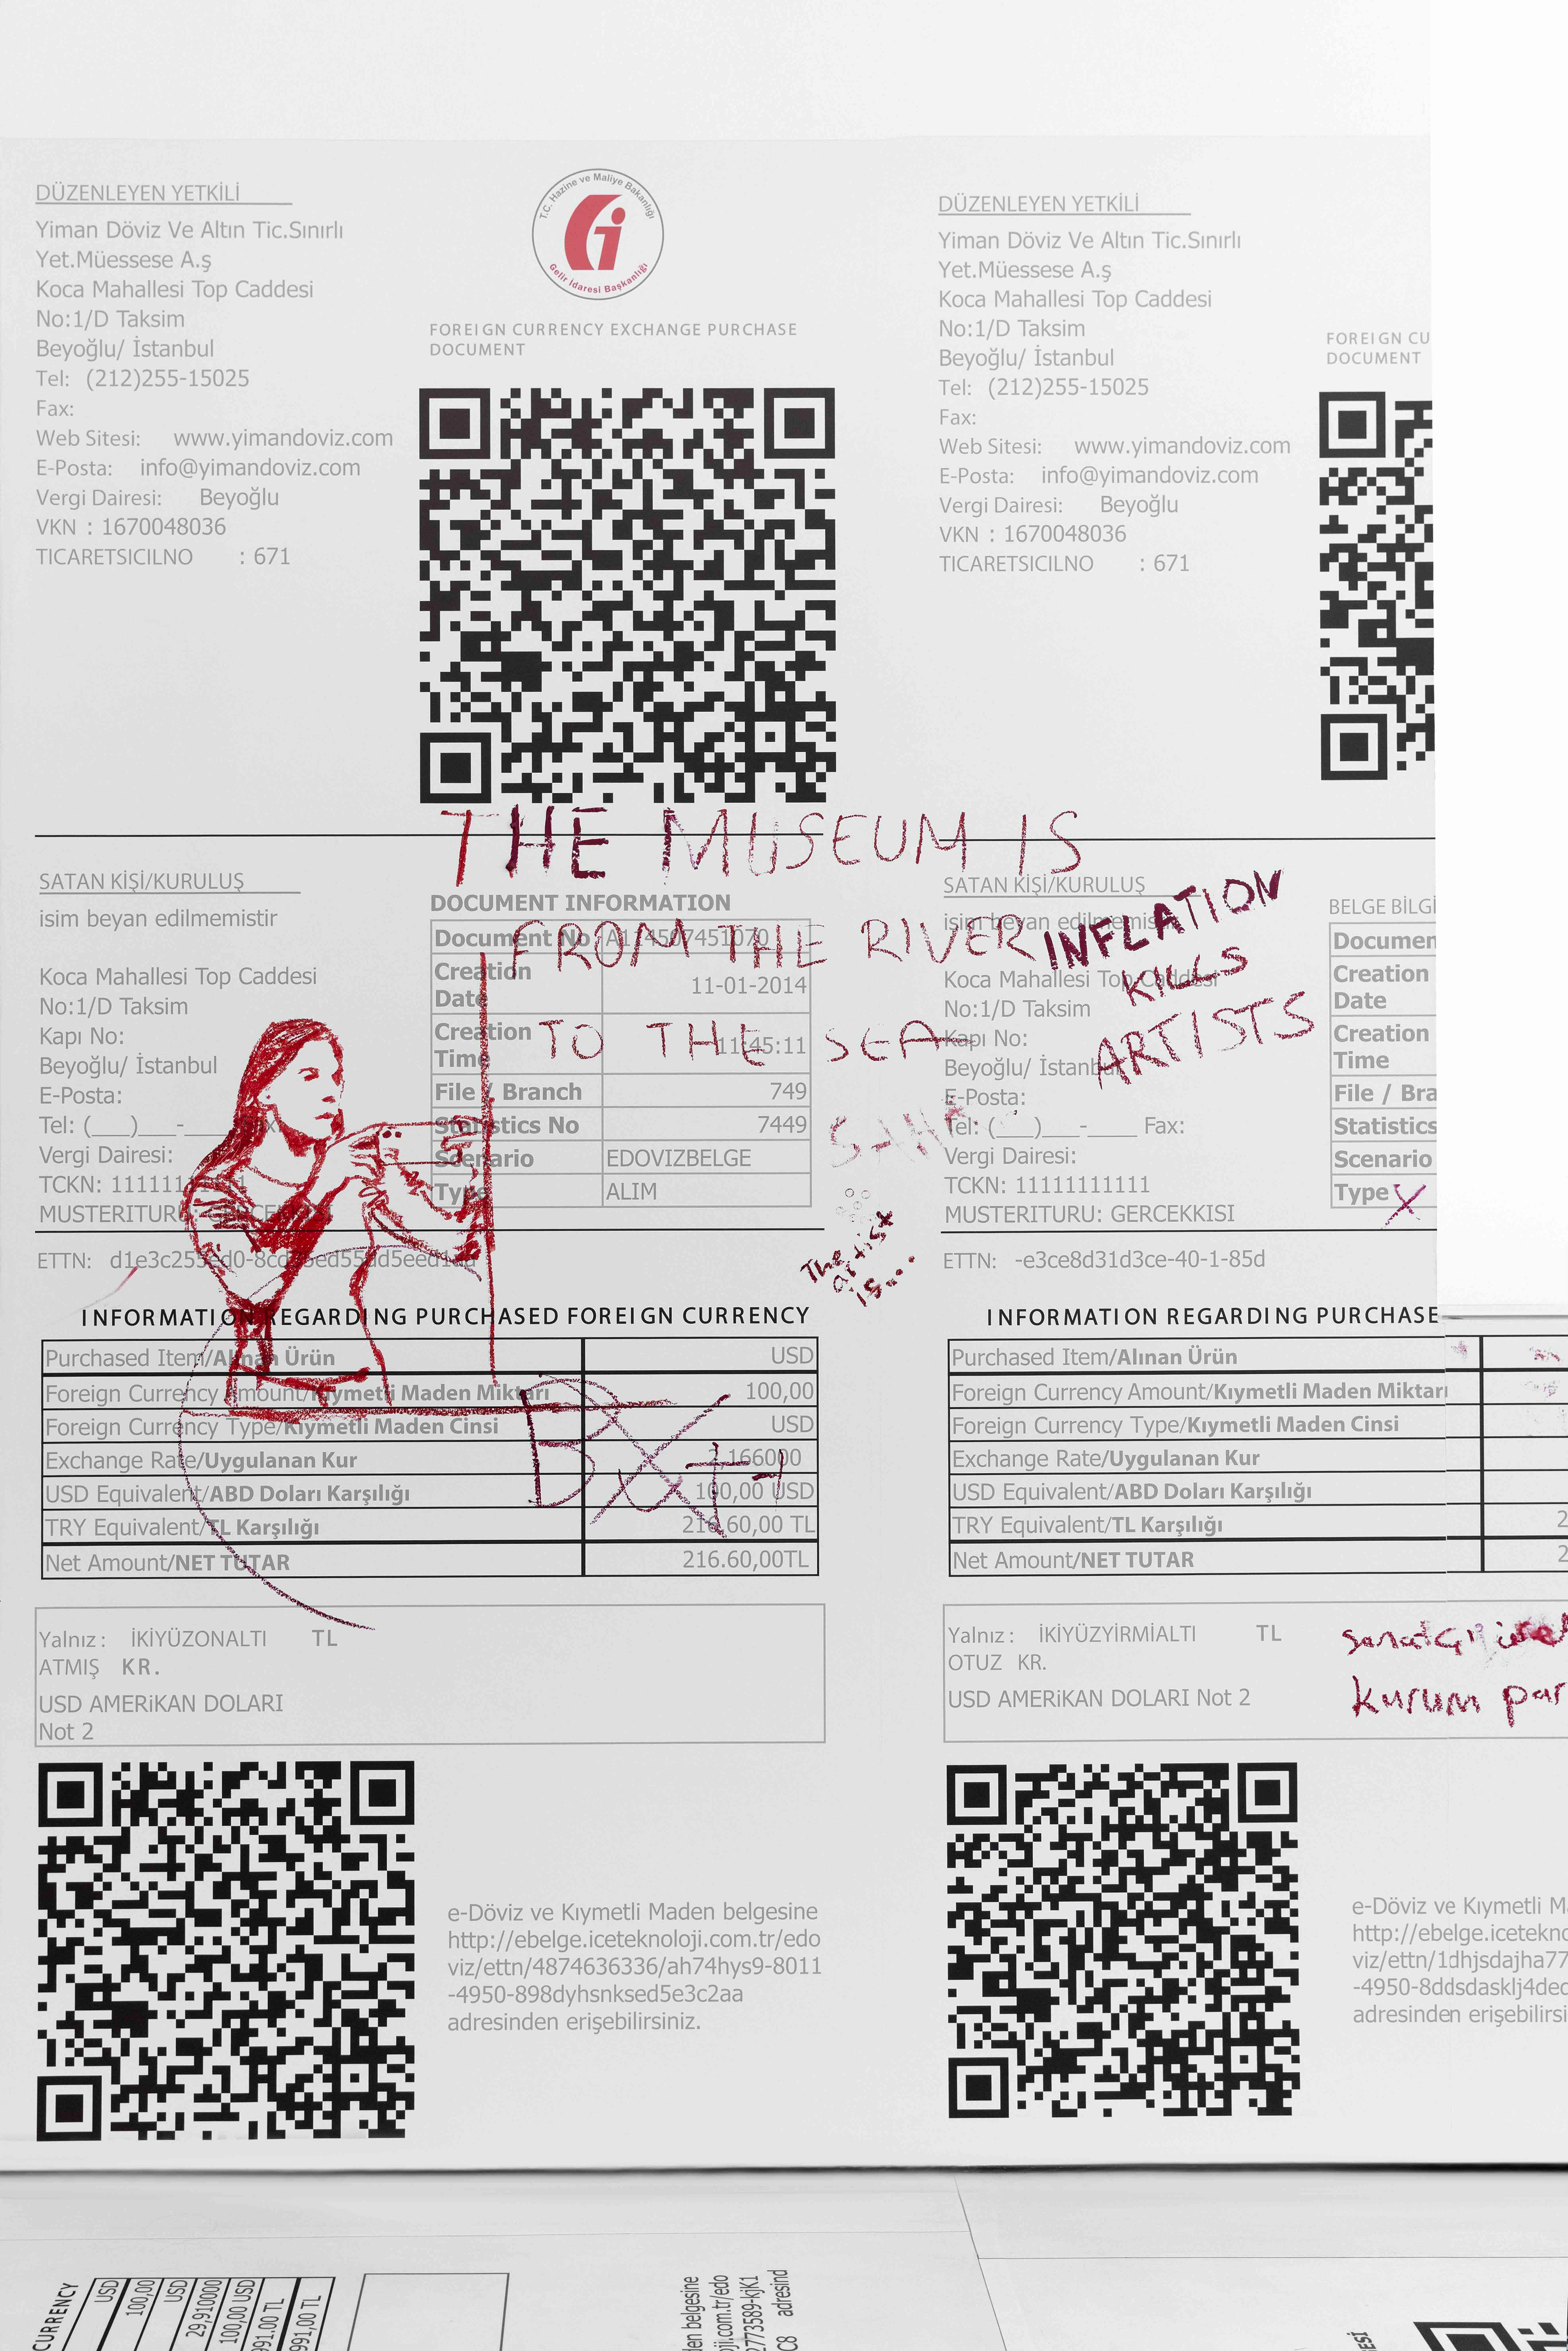 DÜZENLEYEN YETKİLİ
Yiman Döviz Ve Altın Tic.Sınırlı
Yet.Müessese A.ş
Koca Mahallesi Top Caddesi
No:1/D Taksim
Beyoğlu/ İstanbul
Tel: (212)255-15025
Fax:
Web Sitesi: www.yimandoviz.com
E-Posta: info@yimandoviz.com
Vergi Dairesi: Beyoğlu
VKN : 1670048036
TICARETSICILNO : 671
T.C. Hazine ve Maliye Bakanlığı
Gelir İdaresi Başkanlığı
FOREIGN CURRENCY EXCHANGE PURCHASE
DOCUMENT
DÜZENLEYEN YETKİLİ
Yiman Döviz Ve Altın Tic.Sınırlı
Yet.Müessese A.ş
Koca Mahallesi Top Caddesi
No:1/D Taksim
Beyoğlu/ İstanbul
Tel: (212)255-15025
Fax:
Web Sitesi: www.yimandoviz.com
E-Posta: info@yimandoviz.com
Vergi Dairesi: Beyoğlu
VKN : 1670048036
TICARETSICILNO : 671
FOREIGN CU
DOCUMENT
THE MUSEUM IS
FROM THE RIVER
TO THE SEA
INFLATION
KILLS
ARTISTS
The
artist
is...
SATAN KİŞİ/KURULUŞ
isim beyan edilmemistir
Koca Mahallesi Top Caddesi
No:1/D Taksim
Kapı No:
Beyoğlu/ İstanbul
E-Posta:
Tel: (___)___-____
Vergi Dairesi:
TCKN: 11111111111
MUSTERITURU: GERCEKKISI
DOCUMENT INFORMATION
Document No A114507451070
Creation Date 11-01-2014
Creation Time 11:45:11
File / Branch 749
Statistics No 7449
Scenario EDOVIZBELGE
Type ALIM
SATAN KİŞİ/KURULUŞ
isim beyan edilmemis
Koca Mahallesi Top Caddesi
No:1/D Taksim
Kapı No:
Beyoğlu/ İstanbul
E-Posta:
Tel: (___)___-____ Fax:
Vergi Dairesi:
TCKN: 11111111111
MUSTERITURU: GERCEKKISI
BELGE BİLGİ
Documen
Creation
Date
Creation
Time
File / Bra
Statistics
Scenario
Type X
ETTN:
ETTN: -e3ce8d31d3ce-40-1-85d
INFORMATION REGARDING PURCHASED FOREIGN CURRENCY
Purchased Item/Alınan Ürün USD
Foreign Currency Amount/Kıymetli Maden Miktarı 100,00
Foreign Currency Type/Kıymetli Maden Cinsi USD
Exchange Rate/Uygulanan Kur 2,166000
USD Equivalent/ABD Doları Karşılığı 100,00 USD
TRY Equivalent/TL Karşılığı 216.60,00 TL
Net Amount/NET TUTAR 216.60,00TL
INFORMATION REGARDING PURCHASE
Purchased Item/Alınan Ürün
Foreign Currency Amount/Kıymetli Maden Miktarı
Foreign Currency Type/Kıymetli Maden Cinsi
Exchange Rate/Uygulanan Kur
USD Equivalent/ABD Doları Karşılığı
TRY Equivalent/TL Karşılığı 2
Net Amount/NET TUTAR 2
Yalnız : İKİYÜZONALTI TL
ATMIŞ KR.
USD AMERiKAN DOLARI
Not 2
Yalnız : İKİYÜZYİRMİALTI TL
OTUZ KR.
USD AMERiKAN DOLARI Not 2
kurum par
e-Döviz ve Kıymetli Maden belgesine
http://ebelge.iceteknoloji.com.tr/edo
viz/ettn/4874636336/ah74hys9-8011
-4950-898dyhsnksed5e3c2aa
adresinden erişebilirsiniz.
e-Döviz ve Kıymetli M
http://ebelge.icetekno
viz/ettn/1dhjsdajha77
-4950-8ddsdasklj4dec
adresinden erişebilirsi
CURRENCY
USD
100,00
USD
29,910000
100,00 USD
991.00 TL
991,00 TL
den belgesine
ji.com.tr/edo
2773589-kjK1
C8 adresind